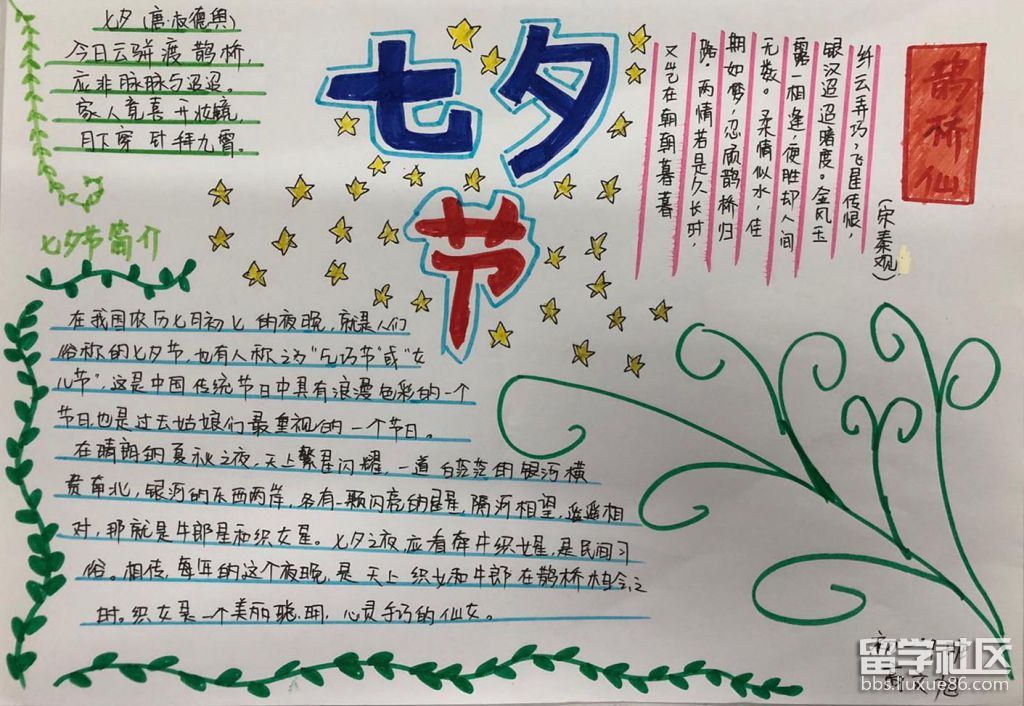 七夕（唐权德舆）
今日云骈渡鹊桥，
应非脉脉与迢迢。
家人竟喜开妆镜，
月下穿针拜九霄。
七夕节
鹊桥仙
（宋秦观）
纤云弄巧，飞星传恨，
银汉迢迢暗度。金风玉
露一相逢，便胜却人间
无数。柔情似水，佳
期如梦，忍顾鹊桥归
路，两情若是久长时，
又岂在朝朝暮暮
七夕节简介
在我国农历七月初七的夜晚，就是人们
俗称的七夕节，也有人称之为"乞巧节"或"女
儿节"，这是中国传统节日中具有浪漫色彩的一个
节日也是过去姑娘们最重视的一个节日。
在晴朗的夏秋之夜，天上繁星闪耀，一道白茫茫的银河横
贯南北，银河的东西两岸，各有一颗闪亮的星星，隔河相望，遥遥相
对，那就是牛郎星和织女星。七夕之夜，应看牵牛织女星，是民间习
俗。相传，每年的这个夜晚，是天上织女和牛郎在鹊桥相会之
时。织女是一个美丽聪明，心灵手巧的仙女。
留学社区
bbs.liuxue86.com